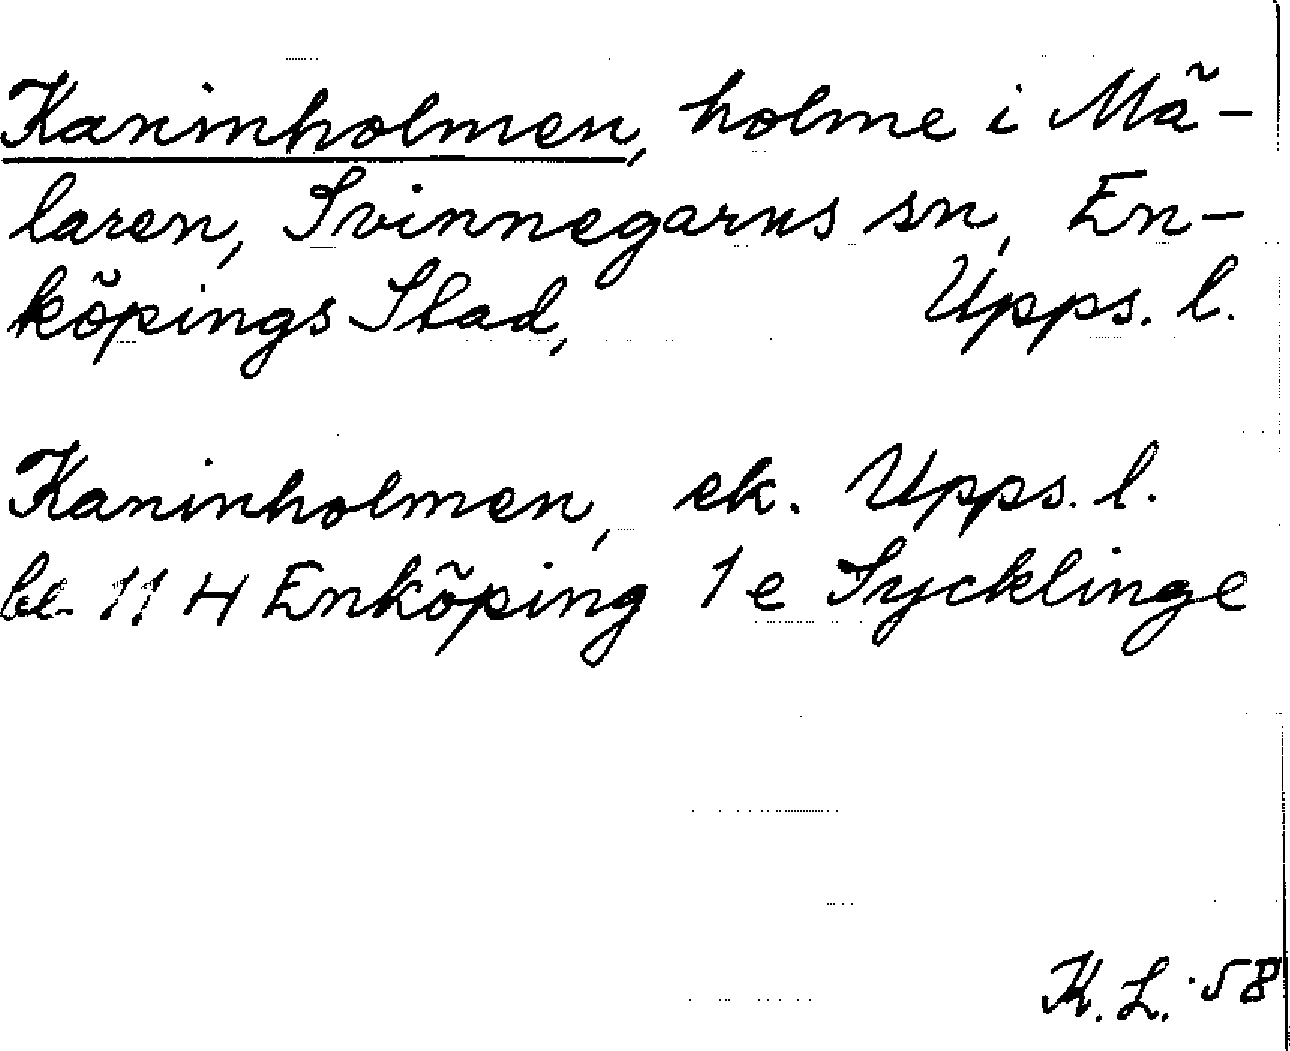 Kaninholmen, holme i Mä-
laren, Svinnegarns sn, En-
köpings Stad, Upps. l.
Kaninholmen, ek. Upps. l.
bl. 11 H Enköping 1 e Sycklinge
K. L. 58